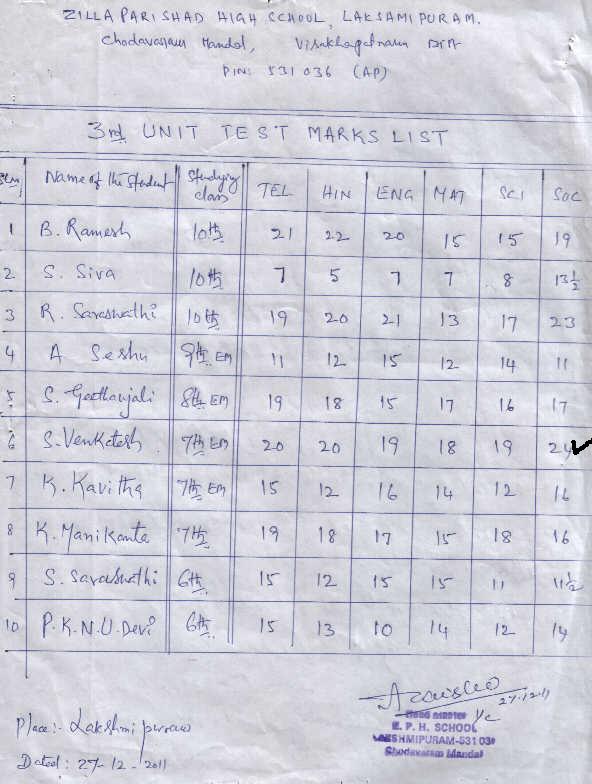 ZILLA PARISHAD HIGH SCHOOL, LAKSAMIPURAM.
Chodavaram Mandal, Visakhapatnam Dist
PIN: 531036 (AP)
3rd UNIT TEST MARKS LIST
Name of the Student Studying class TEL HIN ENG MAT SCI SOC
1 B. Ramesh 10th 21 22 20 15 15 19
2 S. Siva 10th 7 5 7 7 8 13½
3 R. Saraswathi 10th 19 20 21 13 17 23
4 A Seshu 9th EM 11 12 15 12 14 11
5 S. Geethanjali 8th EM 19 18 15 17 16 17
6 S. Venkatesh 7th EM 20 20 19 18 19 24
7 K. Kavitha 7th EM 15 12 16 14 12 16
8 K. Manikanta 7th 19 18 17 15 18 16
9 S. Saraswathi 6th 15 12 15 15 11 11½
10 P.K.N.U.Devi 6th 15 13 10 14 12 14
27-12-11
Head master I/c
Z. P. H. SCHOOL
LAKSHMIPURAM-531 036
Chodavaram Mandal
Place:- Lakshmipuram
Dated: 27-12-2011